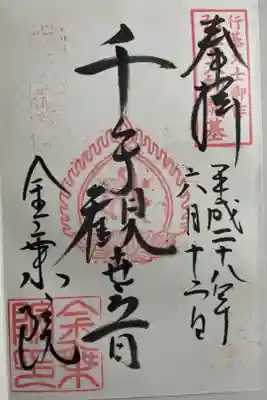 奉拝
行基大士御作
平成二十八年
六月十二日
千手觀世音
金乗院
金乗院印